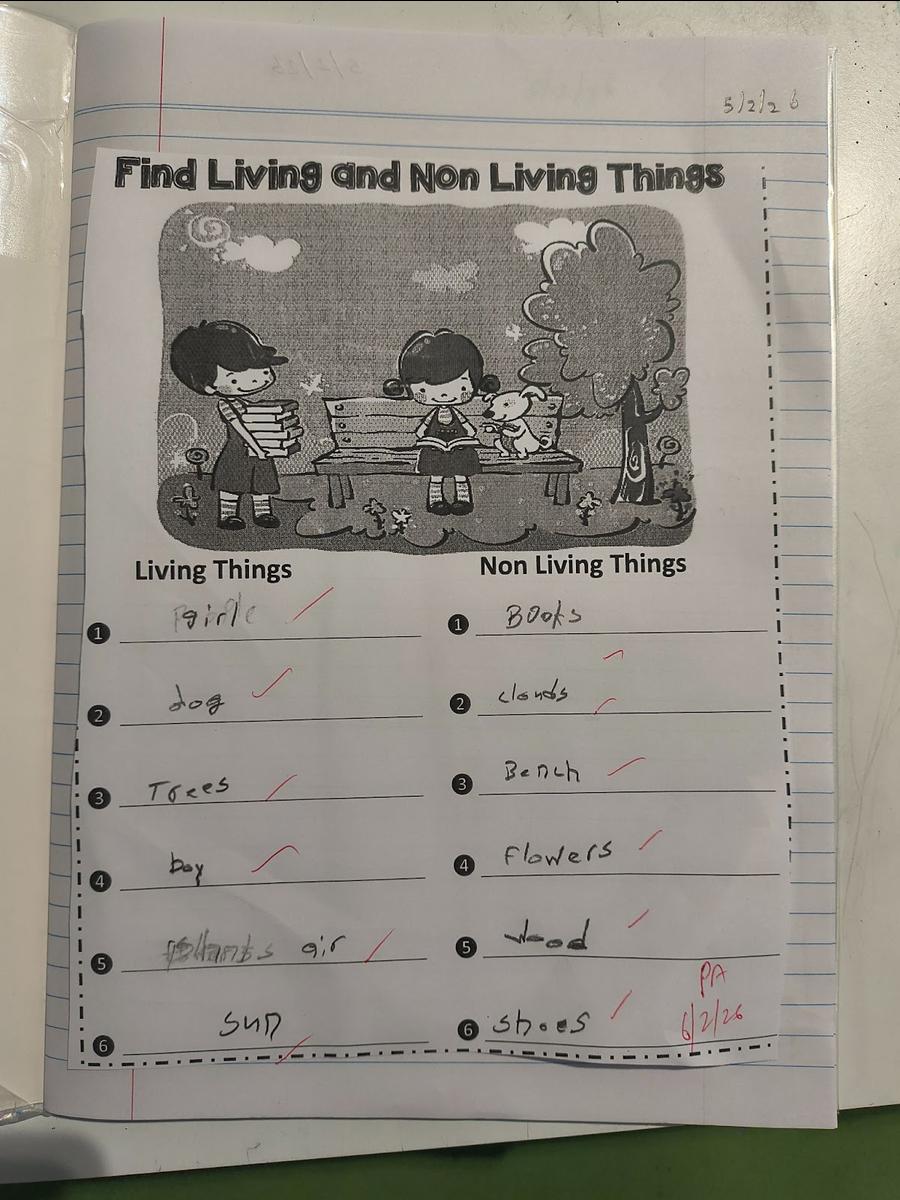 5/2/26
Find Living and Non Living Things
Living Things
Non Living Things
1 girl
2 dog
3 Trees
4 boy
5 air
6 sun
1 Books
2 clouds
3 Bench
4 Flowers
5 wood
6 shoes
PA
6/2/26